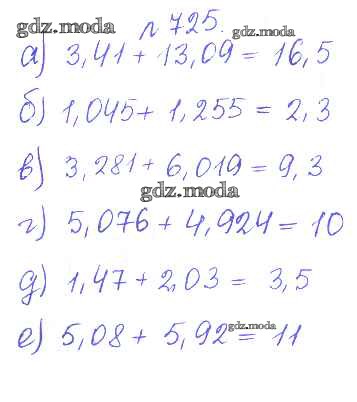 gdz.moda № 725. gdz.moda
а) 3,41 + 13,09 = 16,5
б) 1,045 + 1,255 = 2,3
в) 3,281 + 6,019 = 9,3
gdz.moda
г) 5,076 + 4,924 = 10
д) 1,47 + 2,03 = 3,5
е) 5,08 + 5,92 = 11
gdz.moda